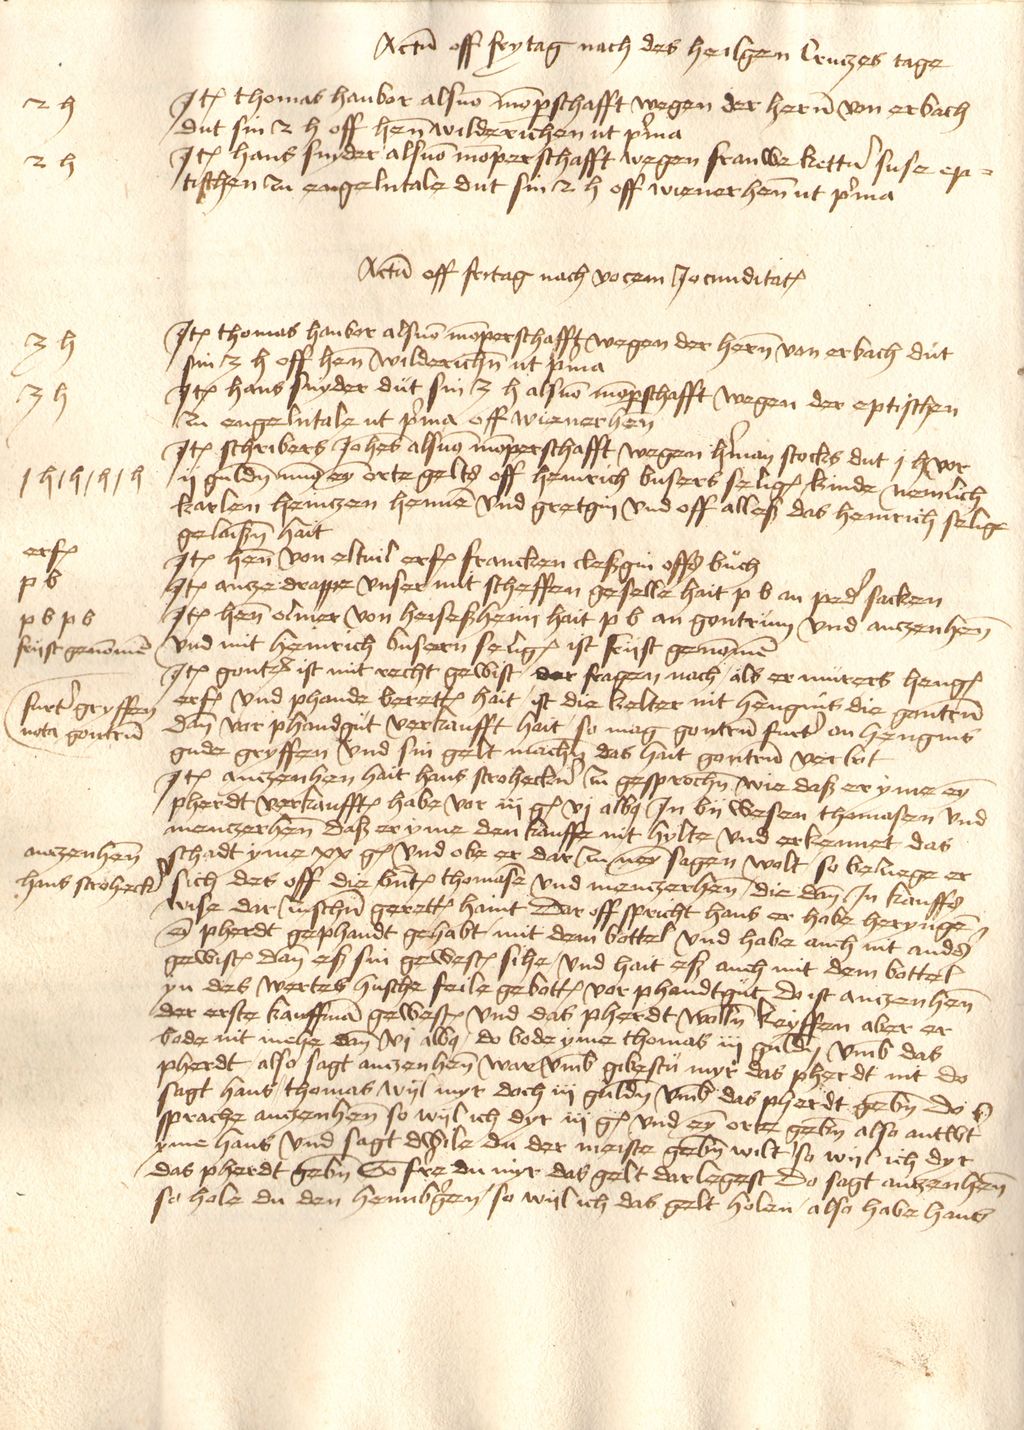 Actu off frytag nach des heilgen Cruczes tage
2 h
Jt thomas hanbor alsuo momperschafft wegen der hern von erbach
dut sin 2 h off hen wilderichen ut prima
2 h
Jt hans snyder alsuo momperschafft wegen frauwe kettir suse ep-
tischen zu engelntale dut sin 2 h off wienerhen ut prima
Actu off fritag nach vocem Jocunditat
3 h
Jt thomas hanbor alsuo momperschafft wegen der hern von erbach dut
sin 3 h off hen wilderichn ut prima
3 h
Jt hans snyder dut sin 3 h alsuo momperschafft wegen der eptischen
zu engelntale ut prima off wienerhen
Jt schribers Johes alsuo momperschafft wegen herman stocks dut 1 h vor
1 h 1 h 1 h 1 h
ii guldn mynner ey orte gelts off heinrich busers selig kinde nemlich
karlen heinczen hennen und gretgin und off alles das heinrich selige
gelaißn hait
erf
Jt hen von eltuil erf francken cleßgin offs buch
p b
Jt ancze drappe unser mit scheffen geselle hait p b an peder sacken
p b p b
Jt hen olmer von heiseßheim hait p b an gontrum und anczenhen
frijst genomen
und mit heinrich busern selig ist frijst genomen
Jt gontrum ist mit recht gewist der fragen nach als er murers heng
furter gryffen
erf und phande berett hait ist die kelter nit hengins die gontrum
nota gontrum
dan vor phandgut verkaufft hait so mag gontrum furter an hengins
gude gryffen und sin gelt machn das hait gontrum verbot
Jt anczenhen hait hans strohecker zu gesprochn wie daß er yme ey
pherdt verkaufft habe vor iij g vj albq Jn bij wesen thomasen und
menczerhen daß er yme den kauffe nit hylte und erkennet das
anczenhen
schadt yme xx g und obe er dar zu neyn sagen wolt so beliege er
hans strohecker
sich des off die lut thomase und menczerhen die dan Jn kauffs
wise dar zuschn gerett haint Dar off spricht hans er habe heryngen
ey pherdt gephandt gehabt mit dem bottel und habe auch nit anders
gewist dan eß sin gewest sihe und hait eß auch mit dem bottel
yn des wertes husche feile gebott vor phandtgut do ist anczenhen
der erste kauffman gewest und das pherdt wolln keyffen aber er
bode nit mehe dan vj albq do bode yme thomas iij guldn umb das
pherdt also sagt anczenhen war umb gibestu myr das pherdt nit do
sagt hans thomas wijl myr doch iij guldn umb das pherdt gebn Do
sprache anczenhen so wijl ich dyr iij g und ey orte gebn also antwt
yme hans und sagt dwile du der meiste gebn wilt so wijl ich dyr
das pherdt gebn So fre du myr das gelt dar legest Do sagt anczenhen
so hole du den hennbergen so wijl ich das gelt holen also habe hans